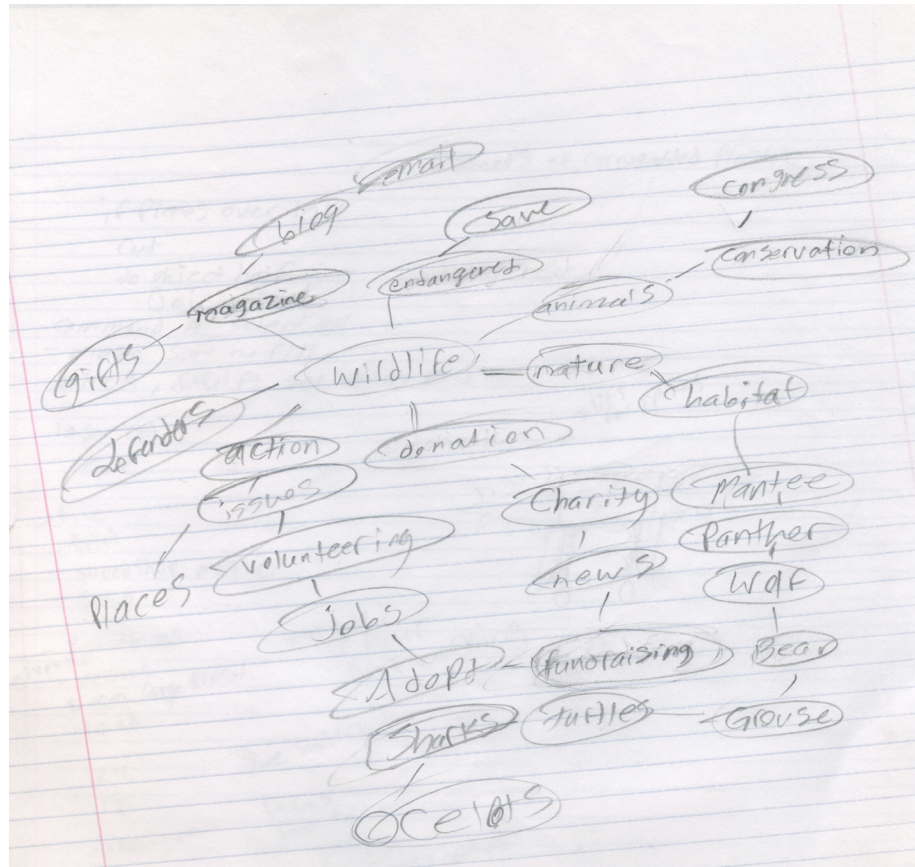 email
congress
blog
save
conservation
endangered
animals
magazine
gifts
wildlife
nature
habitat
defenders
action
donation
issues
charity
Mantee
Panther
volunteering
news
Wolf
Places
jobs
Adopt
fundraising
Bear
Sharks
turtles
Grouse
Ocelots